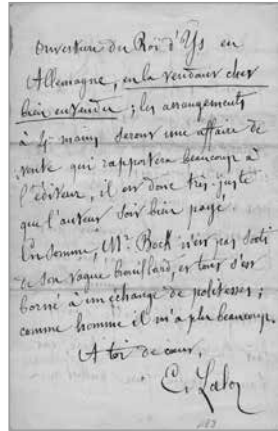 Ouverture du Roi d'Ys en
Allemagne, en la vendant cher
bien entendu ; les arrangements
à 4 mains seront une affaire de
vente qui rapportera beaucoup à
l'éditeur, il est donc très-juste
que l'auteur soit bien payé.
En somme, Mr. Bock n'est pas sorti
de son vague brouillard, et tout s'est
borné à un échange de politesses ;
comme homme il m'a plu beaucoup.
A toi de cœur,
E. Lalo